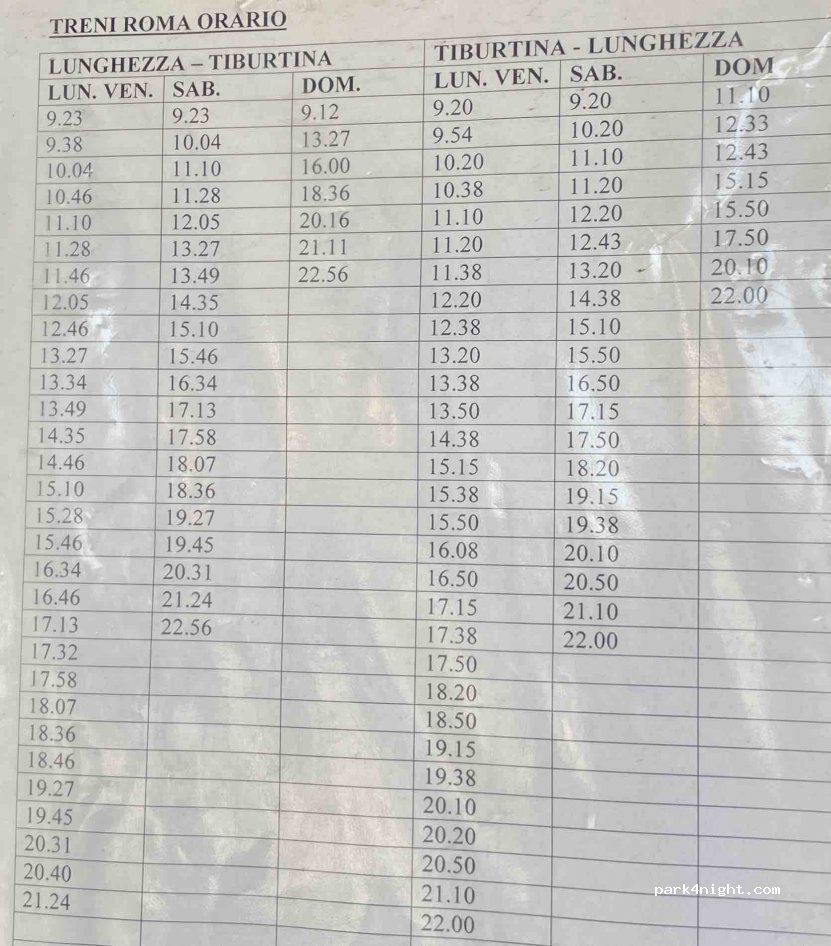 TRENI ROMA ORARIO
LUNGHEZZA – TIBURTINA TIBURTINA - LUNGHEZZA
LUN. VEN. SAB. DOM. LUN. VEN. SAB. DOM
9.23 9.23 9.12 9.20 9.20 11.10
9.38 10.04 13.27 9.54 10.20 12.33
10.04 11.10 16.00 10.20 11.10 12.43
10.46 11.28 18.36 10.38 11.20 15.15
11.10 12.05 20.16 11.10 12.20 15.50
11.28 13.27 21.11 11.20 12.43 17.50
11.46 13.49 22.56 11.38 13.20 20.10
12.05 14.35 12.20 14.38 22.00
12.46 15.10 12.38 15.10
13.27 15.46 13.20 15.50
13.34 16.34 13.38 16.50
13.49 17.13 13.50 17.15
14.35 17.58 14.38 17.50
14.46 18.07 15.15 18.20
15.10 18.36 15.38 19.15
15.28 19.27 15.50 19.38
15.46 19.45 16.08 20.10
16.34 20.31 16.50 20.50
16.46 21.24 17.15 21.10
17.13 22.56 17.38 22.00
17.32 17.50
17.58 18.20
18.07 18.50
18.36 19.15
18.46 19.38
19.27 20.10
19.45 20.20
20.31 20.50
20.40 21.10
21.24 22.00
park4night.com